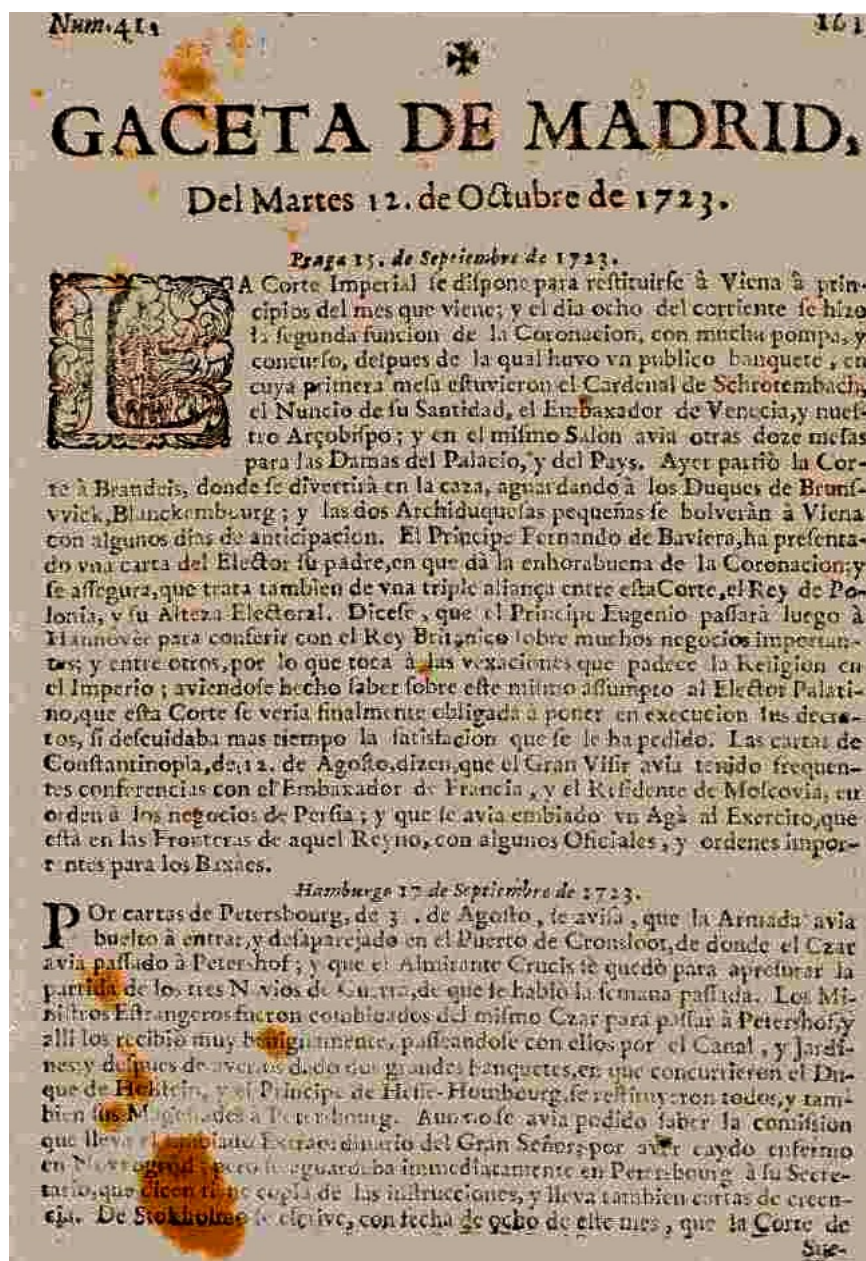 Num. 41,
161
GACETA DE MADRID,
Del Martes 12. de Octubre de 1723.
Praga 15. de Septiembre de 1723.
LA Corte Imperial se dispone para restituirse à Viena à prin-
cipios del mes que viene; y el dia ocho del corriente se hizo
la segunda funcion de la Coronacion, con mucha pompa, y
concurso, despues de la qual huvo vn publico banquete, en
cuya primera mesa estuvieron el Cardenal de Schrotembach,
el Nuncio de su Santidad, el Embaxador de Venecia, y nues-
tro Arçobispo; y en el mismo Salon avia otras doze mesas
para las Damas del Palacio, y del Pays. Ayer partiò la Cor-
te à Brandeis, donde se divertirà en la caza, aguardando à los Duques de Brunf-
vvick, Blanckembourg; y las dos Archiduquesas pequeñas se bolveràn à Viena
con algunos dias de anticipacion. El Principe Fernando de Baviera, ha presenta-
do vna carta del Elector su padre, en que dà la enhorabuena de la Coronacion; y
se assegura, que trata tambien de vna triple aliança entre esta Corte, el Rey de Po-
lonia, y su Alteza Electoral. Dicese, que el Principe Eugenio passarà luego à
Hannover para conferir con el Rey Britanico sobre muchos negocios importan-
tes; y entre otros, por lo que toca à las vexaciones que padece la Religion en
el Imperio; aviendose hecho saber sobre este mismo assumpto al Elector Palati-
no, que esta Corte se veria finalmente obligada à poner en execucion sus decre-
tos, si descuidaba mas tiempo la satisfacion que se le ha pedido. Las cartas de
Constantinopla, de 12. de Agosto, dizen, que el Gran Visir avia tenido frequen-
tes conferencias con el Embaxador de Francia, y el Residente de Moscovia, en
orden à los negocios de Persia; y que se avia embiado vn Agà al Exercito, que
està en las Fronteras de aquel Reyno, con algunos Oficiales, y ordenes impor-
tantes para los Baxaes.
Hamburgo 17 de Septiembre de 1723.
POr cartas de Petersbourg, de 3 . de Agosto, se avisa, que la Armada avia
buelto à entrar, y desaparejado en el Puerto de Cronsloot, de donde el Czar
avia passado à Petershof; y que el Almirante Crucis se quedò para apresurar la
partida de los tres Navios de Guerra, de que se hablò la semana passada. Los Mi-
nistros Estrangeros fueron combidados del mismo Czar para passar à Petershof, y
alli los recibiò muy benignamente, passeandose con ellos por el Canal, y Jardi-
nes; y despues de averlos dado dos grandes banquetes, en que concurrieron el Du-
que de Holstein, y el Principe de Hesse-Hombourg, se restituyeron todos, y tam-
bien sus Magestades à Petersbourg. Aun no se avia podido saber la comission
que lleva el embiado Extraordinario del Gran Señor, por aver caydo enfermo
en Novogrod; pero se aguardaba immediatamente en Petersbourg à su Secre-
tario, que dicen tiene copia de las instrucciones, y lleva tambien cartas de creen-
cia. De Stokholmo se escrive, con fecha de ocho de este mes, que la Corte de
Sue-